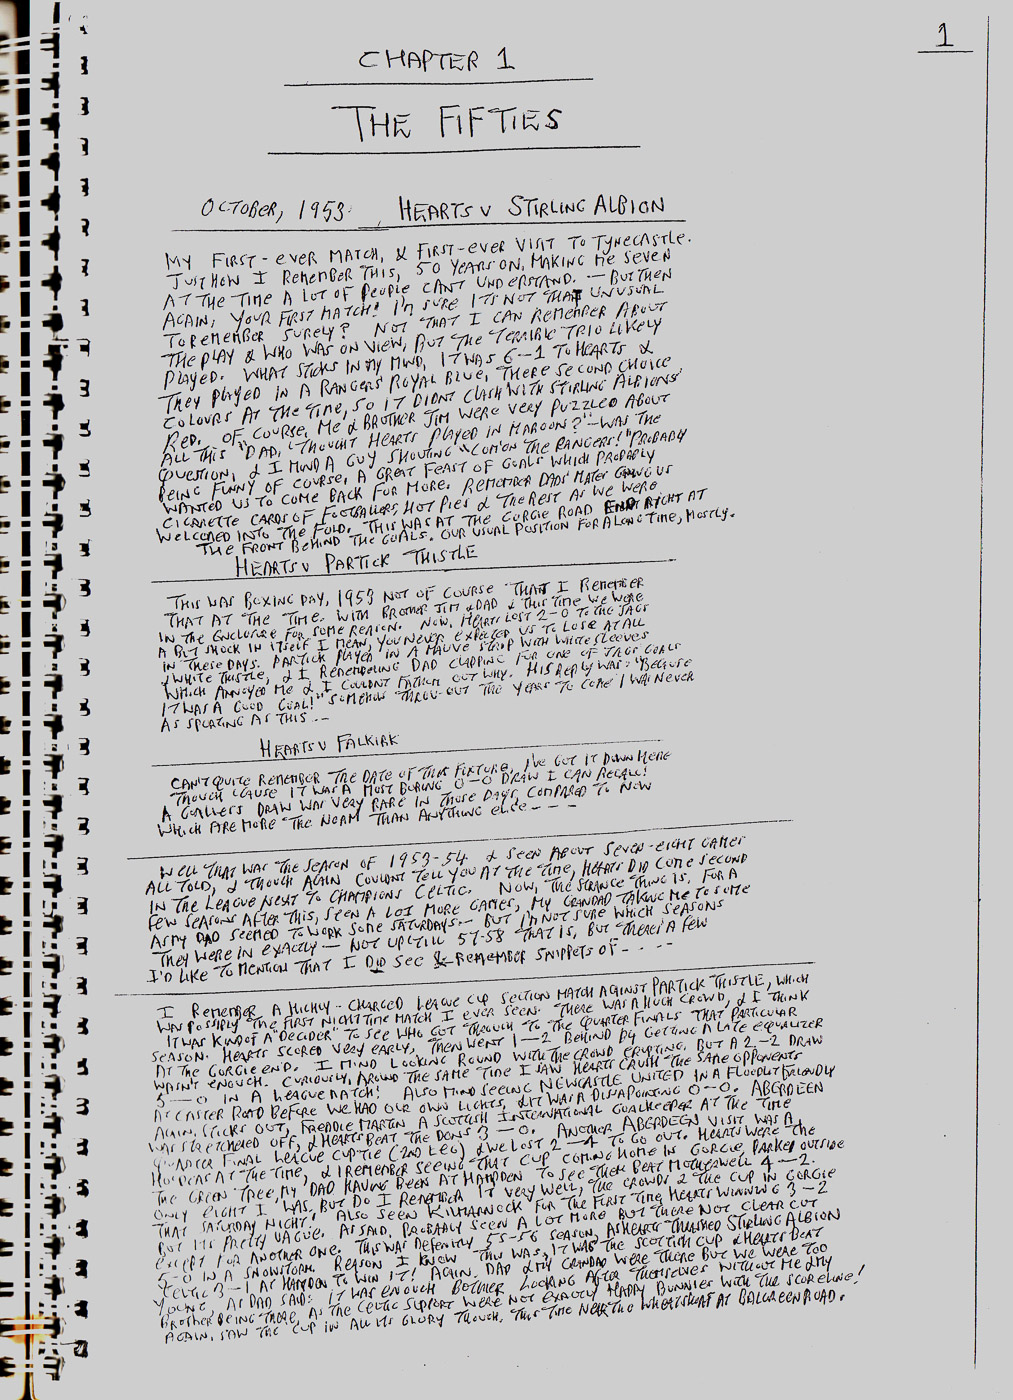 1
CHAPTER 1
THE FIFTIES
OCTOBER, 1953. HEARTS V STIRLING ALBION
MY FIRST-EVER MATCH, & FIRST-EVER VISIT TO TYNECASTLE.
JUST HOW I REMEMBER THIS, 50 YEARS ON, MAKING ME SEVEN
AT THE TIME A LOT OF PEOPLE CANT UNDERSTAND. — BUT THEN
AGAIN, YOUR FIRST MATCH! I'M SURE ITS NOT THAT UNUSUAL
TO REMEMBER SURELY? NOT THAT I CAN REMEMBER ABOUT
THE PLAY & WHO WAS ON VIEW, BUT THE TERRIBLE TRIO LIKELY
PLAYED. WHAT STICKS IN MY MIND, IT WAS 6-1 TO HEARTS &
THEY PLAYED IN A RANGERS ROYAL BLUE, THERE SECOND CHOICE
COLOURS AT THE TIME, SO IT DIDNT CLASH WITH STIRLING ALBIONS'
RED. OF COURSE, ME & BROTHER JIM WERE VERY PUZZLED ABOUT
ALL THIS "DAD, THOUGHT HEARTS PLAYED IN MAROON?" – WAS THE
QUESTION, & I MIND A GUY SHOUTING "COM'ON THE RANGERS!" PROBABLY
BEING FUNNY OF COURSE, A GREAT FEAST OF GOALS WHICH PROBABLY
WANTED US TO COME BACK FOR MORE. REMEMBER DADS' MATES GIVING US
CIGARETTE CARDS OF FOOTBALLERS, HOT PIES & THE REST AS WE WERE
WELCOMED INTO THE FOLD. THIS WAS AT THE GORGIE ROAD END RIGHT AT
THE FRONT BEHIND THE GOALS. OUR USUAL POSITION FOR A LONG TIME, MOSTLY.
HEARTS V PARTICK THISTLE
THIS WAS BOXING DAY, 1953 NOT OF COURSE THAT I REMEMBER
THAT AT THE TIME. WITH BROTHER JIM & DAD & THIS TIME WE WERE
IN THE ENCLOSURE FOR SOME REASON. NOW, HEARTS LOST 2-0 TO THE JAGS
A BIT SHOCK IN ITSELF I MEAN, YOU NEVER EXPECTED US TO LOSE AT ALL
IN THESE DAYS. PARTICK PLAYED IN A MAUVE STRIP WITH WHITE SLEEVES
& WHITE THISTLE, & I REMEMBERING DAD CLAPPING FOR ONE OF JAGS GOALS
WHICH ANNOYED ME & I COULDNT FATHOM OUT WHY. HIS REPLY WAS: "BECAUSE
IT WAS A GOOD GOAL!" SOMEHOW THROU-OUT THE YEARS TO COME I WAS NEVER
AS SPORTING AS THIS ...
HEARTS V FALKIRK
CAN'T QUITE REMEMBER THE DATE OF THAT FIXTURE, I'VE GOT IT DOWN HERE
THOUGH 'CAUSE IT WAS A MOST BORING 0-0 DRAW I CAN RECALL!
A GOALLESS DRAW WAS VERY RARE IN THOSE DAYS COMPARED TO NOW
WHICH ARE MORE THE NORM THAN ANYTHING ELSE - - - -
WELL THAT WAS THE SEASON OF 1953-54 & SEEN ABOUT SEVEN-EIGHT GAMES
ALL TOLD, & THOUGH AGAIN COULDNT TELL YOU AT THE TIME, HEARTS DID COME SECOND
IN THE LEAGUE NEXT TO CHAMPIONS CELTIC. NOW, THE STRANGE THING IS, FOR A
FEW SEASONS AFTER THIS, SEEN A LOT MORE GAMES, MY GRANDAD TAKING ME TO SOME
AS MY DAD SEEMED TO WORK SOME SATURDAYS – BUT I'M NOT SURE WHICH SEASONS
THEY WERE IN EXACTLY — NOT UP TILL 57-58 THAT IS, BUT THERE'S A FEW
I'D LIKE TO MENTION THAT I DID SEE & REMEMBER SNIPPETS OF - - - -
I REMEMBER A HIGHLY-CHARGED LEAGUE CUP SECTION MATCH AGAINST PARTICK THISTLE, WHICH
WAS POSSIBLY THE FIRST NIGHT TIME MATCH I EVER SEEN. THERE WAS A HUGH CROWD, & I THINK
IT WAS KIND OF A "DECIDER" TO SEE WHO GOT THROUGH TO THE QUARTER FINALS THAT PARTICULAR
SEASON. HEARTS SCORED VERY EARLY, THEN WENT 1-2 BEHIND BY GETTING A LATE EQUALIZER
AT THE GORGIE END. I MIND LOOKING ROUND WITH THE CROWD ERUPTING, BUT A 2-2 DRAW
WASN'T ENOUGH. CURIOUSLY, AROUND THE SAME TIME I SAW HEARTS CRUSH THE SAME OPPONENTS
5—0 IN A LEAGUE MATCH! ALSO MIND SEEING NEWCASTLE UNITED IN A FLOODLIT FRIENDLY
AT EASTER ROAD BEFORE WE HAD OUR OWN LIGHTS, & IT WAS A DISAPPOINTING 0-0. ABERDEEN
AGAIN, STICKS OUT, FREDDIE MARTIN A SCOTTISH INTERNATIONAL GOALKEEPER AT THE TIME
WAS STRETCHERED OFF, & HEARTS BEAT THE DONS 3-0. ANOTHER ABERDEEN VISIT WAS A
QUARTER FINAL LEAGUE CUP TIE (2ND LEG) & WE LOST 2-4 TO GO OUT. HEARTS WERE THE
HOLDERS AT THE TIME, & I REMEMBER SEEING THAT CUP COMING HOME IN GORGIE, PARKED OUTSIDE
THE GREEN TREE, MY DAD HAVING BEEN AT HAMPDEN TO SEE THEM BEAT MOTHERWELL 4-2.
ONLY EIGHT I WAS, BUT DO I REMEMBER IT VERY WELL, THE CROWDS & THE CUP IN GORGIE
THAT SATURDAY NIGHT, ALSO SEEN KILMARNOCK FOR THE FIRST TIME, HEARTS WINNING 3-2
BUT ITS PRETTY VAGUE. AS SAID, PROBABLY SEEN A LOT MORE BUT THERE NOT CLEAR CUT
EXCEPT FOR ANOTHER ONE. THIS WAS DEFENITLY 55-56 SEASON, AS HEARTS THRASHED STIRLING ALBION
5-0 IN A SNOWSTORM. REASON I KNOW THIS WAS, IT WAS THE SCOTTISH CUP & HEARTS BEAT
CELTIC 3-1 AT HAMPDEN TO WIN IT! AGAIN. DAD & MY GRANDAD WERE THERE BUT WE WERE TOO
YOUNG, AS DAD SAID: IT WAS ENOUGH BOTHER LOOKING AFTER THEMSELVES WITHOUT ME & MY
BROTHER BEING THERE, AS THE CELTIC SUPPORT WERE NOT EXACTLY HAPPY BUNNIES WITH THE SCORELINE!
AGAIN, SAW THE CUP IN ALL ITS GLORY THOUGH, THIS TIME NEAR THE WHEATSHEAF AT BALGREEN ROAD.